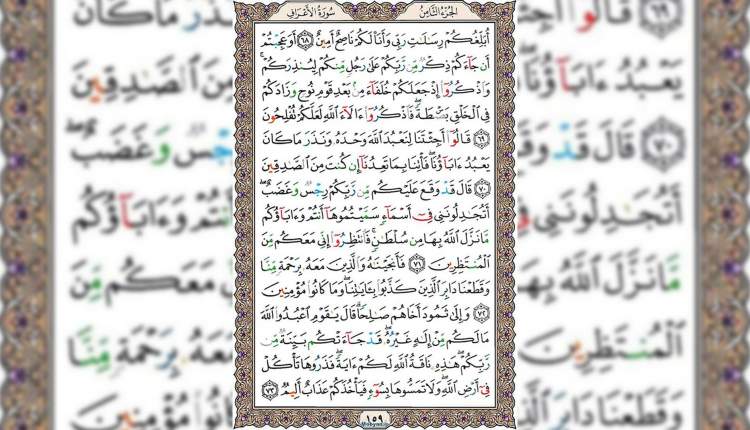 سورة الأعراف الجزء الثامن
أُبَلِّغُكُمْ رِسَٰلَٰتِ رَبِّي وَأَنَا۠ لَكُمْ نَاصِحٌ أَمِينٌ ٦٨ أَوَعَجِبْتُمْ
أَن جَآءَكُمْ ذِكْرٌ مِّن رَّبِّكُمْ عَلَىٰ رَجُلٍ مِّنكُمْ لِيُنذِرَكُمْ ۚ
وَٱذْكُرُوٓا۟ إِذْ جَعَلَكُمْ خُلَفَآءَ مِنۢ بَعْدِ قَوْمِ نُوحٍ وَزَادَكُمْ
فِي ٱلْخَلْقِ بَصْۜطَةً ۖ فَٱذْكُرُوٓا۟ ءَالَآءَ ٱللَّهِ لَعَلَّكُمْ تُفْلِحُونَ
٦٩ قَالُوٓا۟ أَجِئْتَنَا لِنَعْبُدَ ٱللَّهَ وَحْدَهُۥ وَنَذَرَ مَا كَانَ
يَعْبُدُ ءَابَآؤُنَا ۖ فَأْتِنَا بِمَا تَعِدُنَآ إِن كُنتَ مِنَ ٱلصَّٰدِقِينَ
٧٠ قَالَ قَدْ وَقَعَ عَلَيْكُم مِّن رَّبِّكُمْ رِجْسٌ وَغَضَبٌ ۖ
أَتُجَٰدِلُونَنِي فِيٓ أَسْمَآءٍ سَمَّيْتُمُوهَآ أَنتُمْ وَءَابَآؤُكُم
مَّا نَزَّلَ ٱللَّهُ بِهَا مِن سُلْطَٰنٍ ۚ فَٱنتَظِرُوٓا۟ إِنِّي مَعَكُم مِّنَ
ٱلْمُنتَظِرِينَ ٧١ فَأَنجَيْنَٰهُ وَٱلَّذِينَ مَعَهُۥ بِرَحْمَةٍ مِّنَّا
وَقَطَعْنَا دَابِرَ ٱلَّذِينَ كَذَّبُوا۟ بِـَٔايَٰتِنَا ۖ وَمَا كَانُوا۟ مُؤْمِنِينَ
٧٢ وَإِلَىٰ ثَمُودَ أَخَاهُمْ صَٰلِحًا ۗ قَالَ يَٰقَوْمِ ٱعْبُدُوا۟ ٱللَّهَ
مَا لَكُم مِّنْ إِلَٰهٍ غَيْرُهُۥ ۖ قَدْ جَآءَتْكُم بَيِّنَةٌ مِّن
رَّبِّكُمْ ۖ هَٰذِهِۦ نَاقَةُ ٱللَّهِ لَكُمْ ءَايَةً ۖ فَذَرُوهَا تَأْكُلْ
فِيٓ أَرْضِ ٱللَّهِ ۖ وَلَا تَمَسُّوهَا بِسُوٓءٍ فَيَأْخُذَكُمْ عَذَابٌ أَلِيمٌ ٧٣
١٥٩